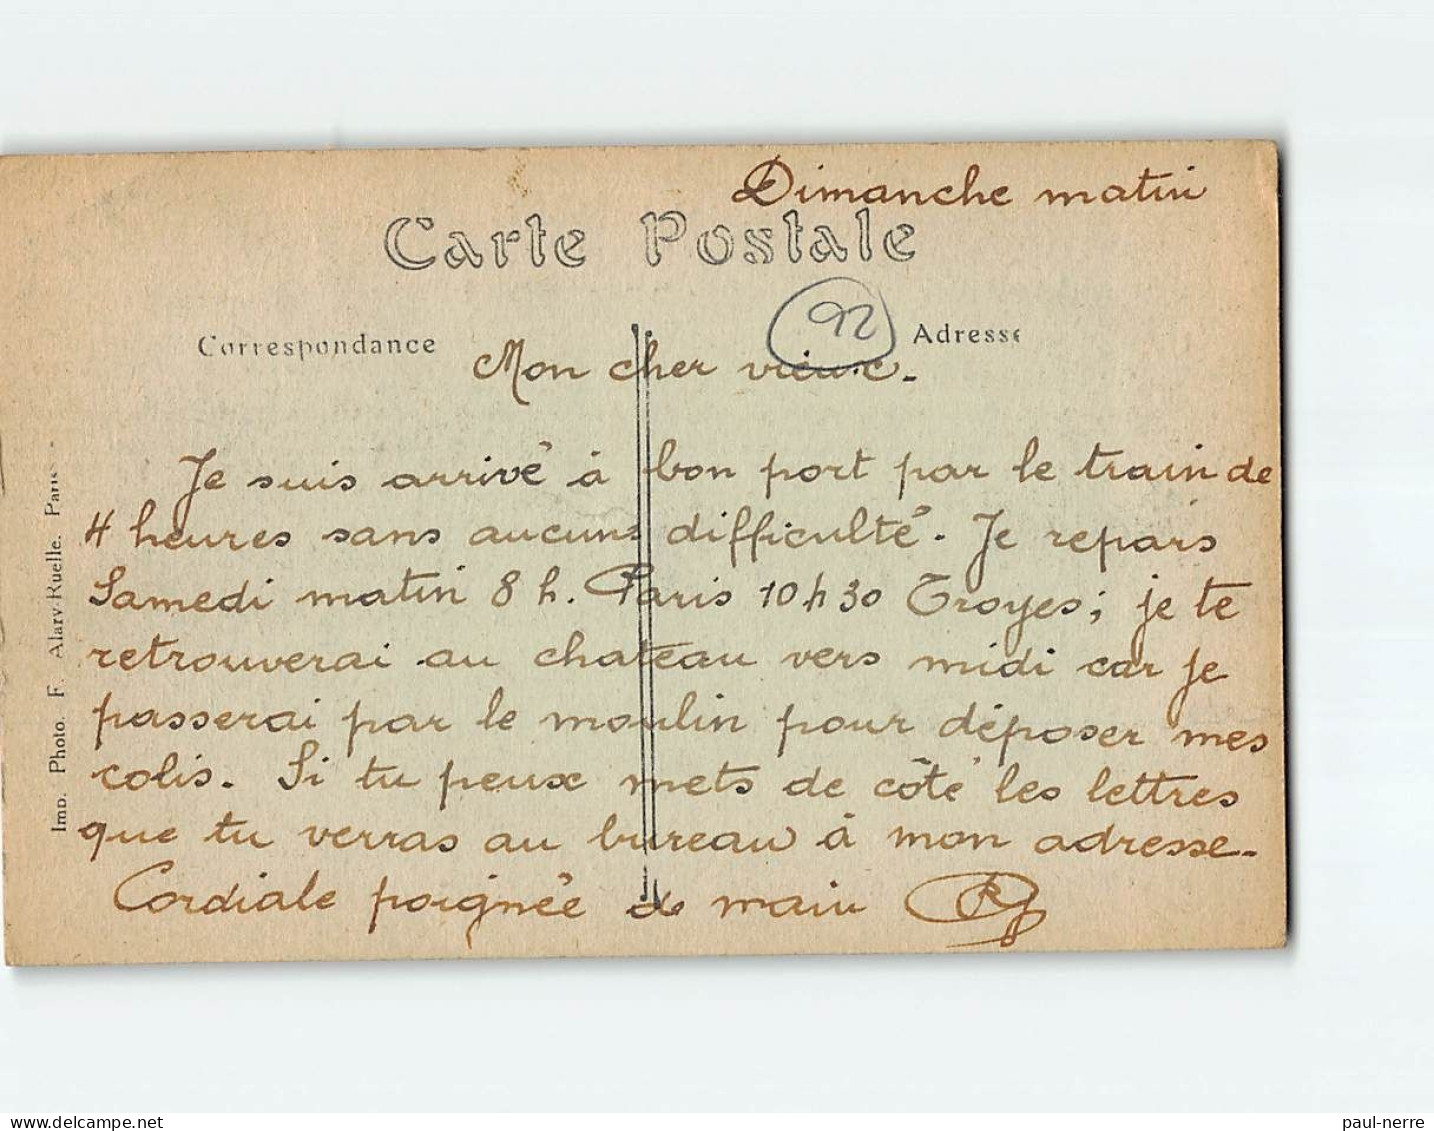 Dimanche matin
Carte Postale
Correspondance
92
Adresse
Mon cher vieux.
Je suis arrivé à bon port par le train de
4 heures sans aucune difficulté. Je repars
Samedi matin 8 h. Paris 10 h 30 Troyes; je te
retrouverai au chateau vers midi car je
passerai par le moulin pour déposer mes
colis. Si tu peux mets de côté les lettres
que tu verras au bureau à mon adresse.
Cordiale poignée de main
Imp. Photo. F. Alary-Ruelle. Paris
paul-nerre